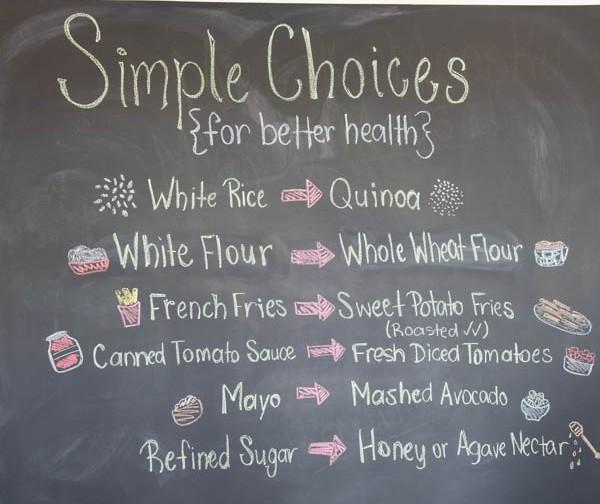 Simple Choices
{for better health}
White Rice Quinoa
White Flour Whole Wheat Flour
French Fries Sweet Potato Fries
(Roasted √√)
Canned Tomato Sauce Fresh Diced Tomatoes
Mayo Mashed Avocado
Refined Sugar Honey or Agave Nectar